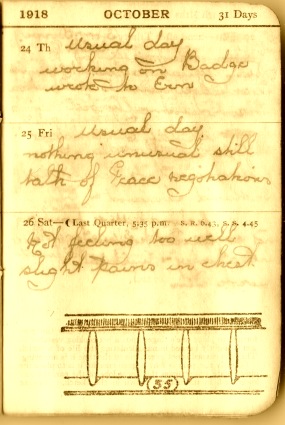 1918 OCTOBER 31 Days
24 Th usual day
working on Badge
wrote to Ern
25 Fri usual day
nothing unusual still
talk of Peace negotiations
26 Sat—(Last Quarter, 5.35 p.m. s. R. 6.43, s. s. 4.45
Not feeling too well
slight pains in chest
(55)